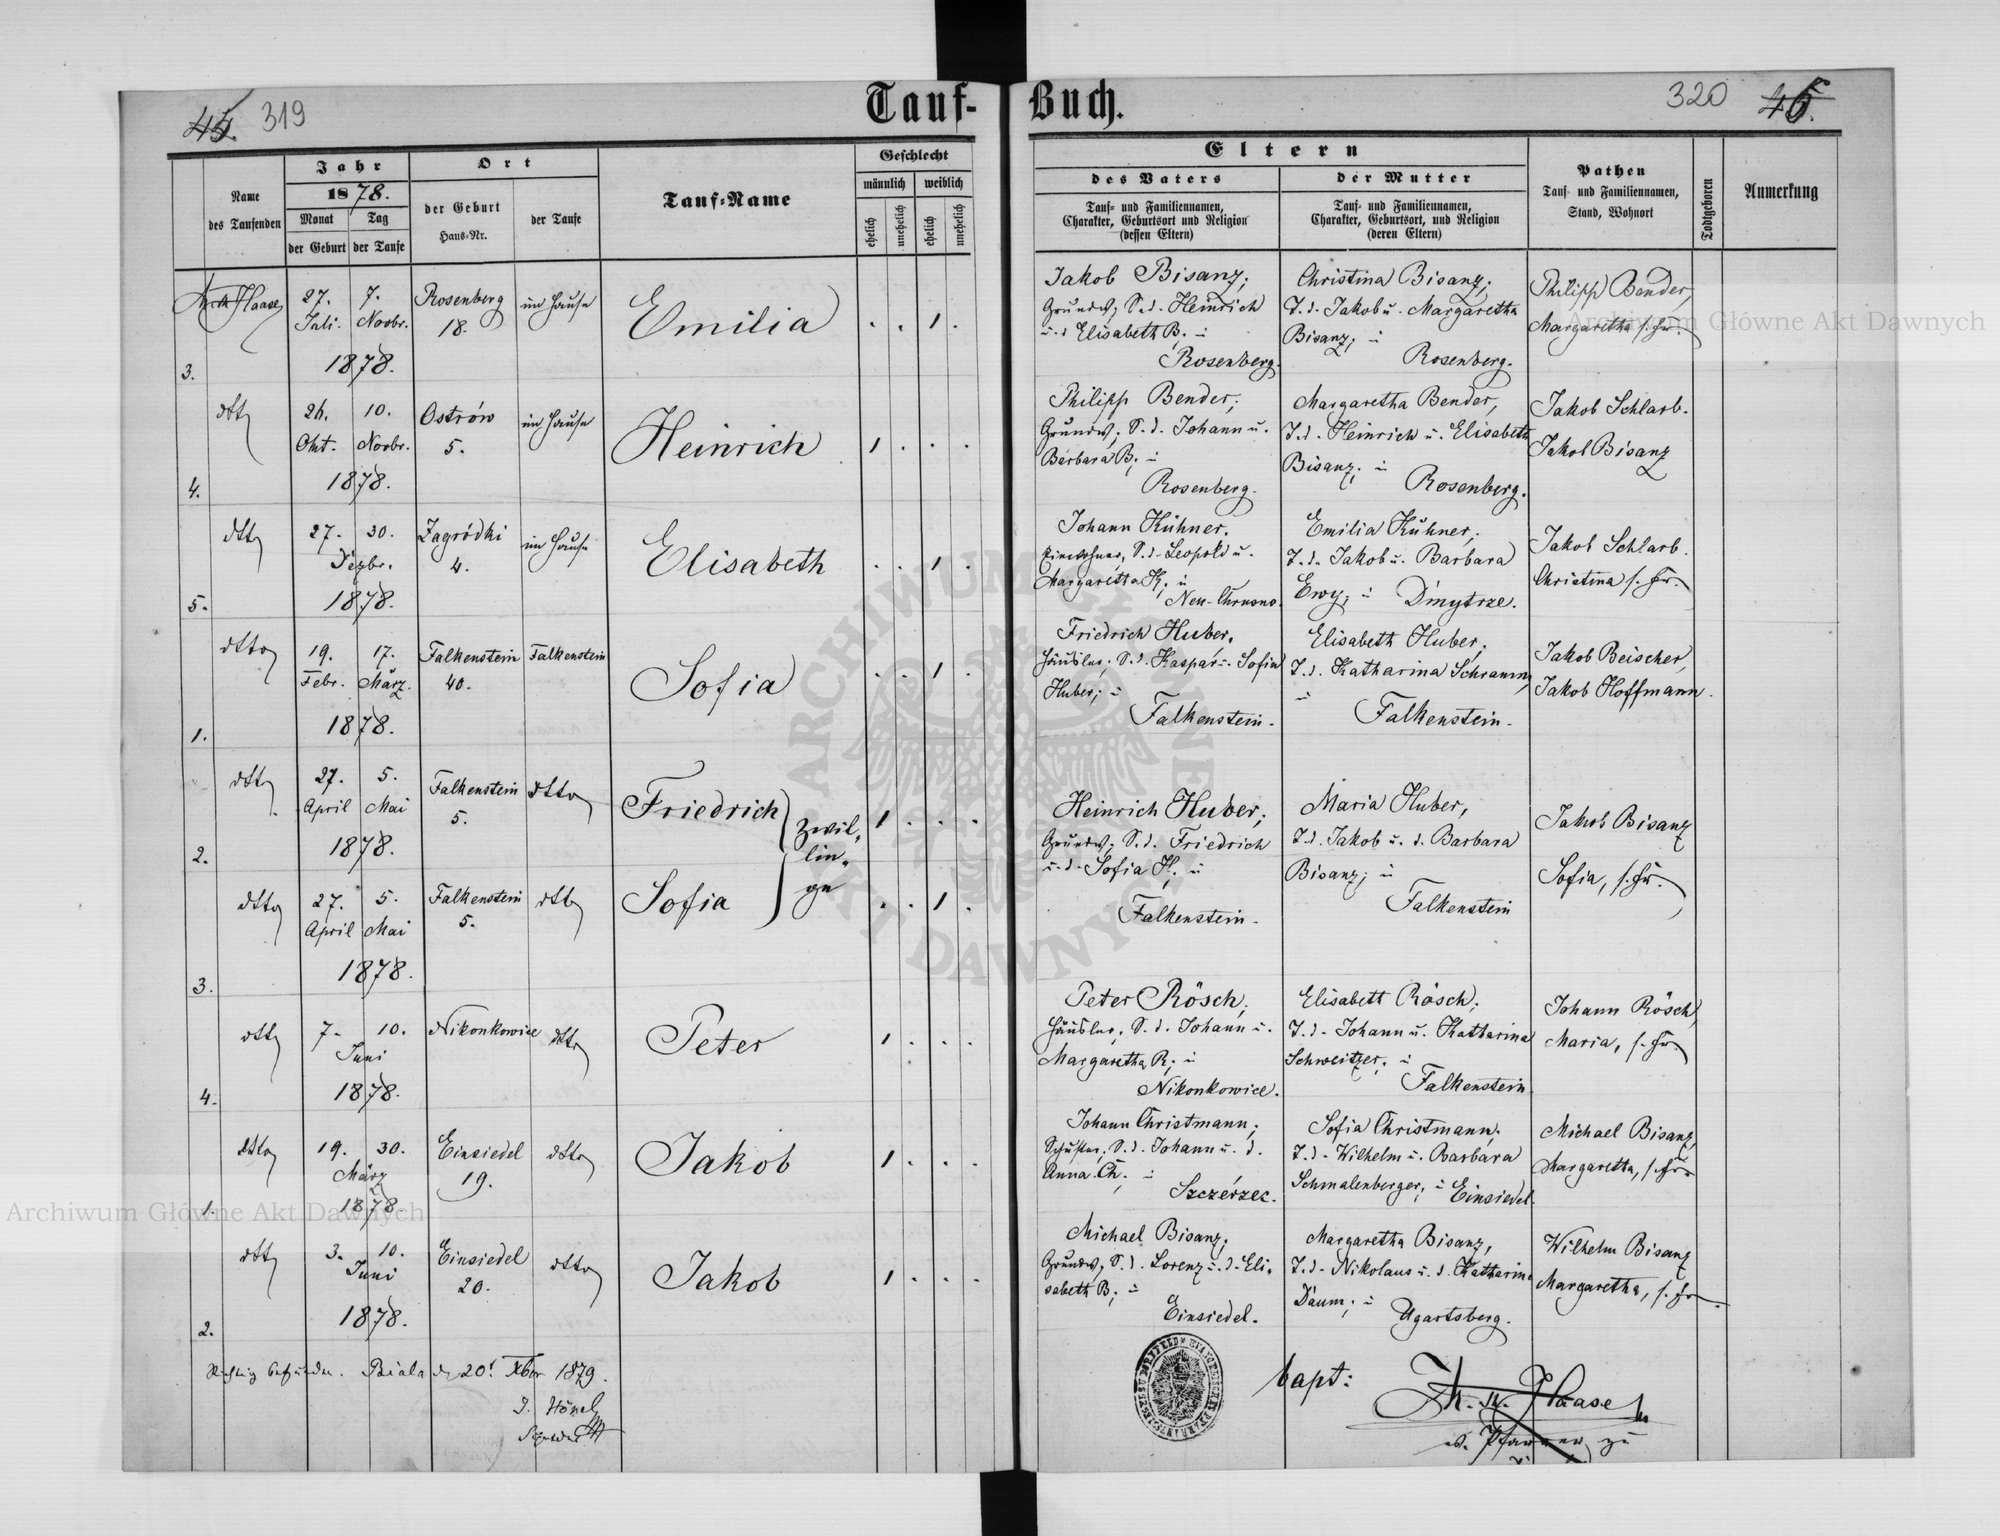 45. 319
Tauf-
Buch.
320 45.
Name
des Taufenden
Jahr
1878.
Monat
der Geburt
Tag
der Taufe
Ort
der Geburt
Haus-Nr.
der Taufe
Tauf-Name
Geschlecht
männlich
weiblich
ehelich
unehelich
ehelich
unehelich
Eltern
des Vaters
Tauf- und Familiennamen,
Charakter, Geburtsort und Religion
(dessen Eltern)
der Mutter
Tauf- und Familiennamen,
Charakter, Geburtsort, und Religion
(deren Eltern)
Pathen
Tauf- und Familiennamen,
Stand, Wohnort
Todtgeboren
Anmerkung
3.
Haase
27. 7.
Juli. Novbr.
1878.
Rosenberg
18.
im Hause
Emilia
. . 1 .
Jakob Bisanz;
Grundw, S. d. Heinrich
u. d Elisabeth B; u
Rosenberg.
Christina Bisanz;
T. d. Jakob u. Margaretha
Bisanz; u
Rosenberg.
Philipp Bender,
Margaretha s. Fr.
4.
dtto
26. 10.
Okt. Novbr.
1878.
Ostrów
5.
im Hause
Heinrich
1 . . .
Philipp Bender;
Grundw; S. d. Johann u.
Barbara B; u
Rosenberg.
Margaretha Bender,
T. d. Heinrich u. Elisabeth
Bisanz; u
Rosenberg.
Jakob Schlarb.
Jakob Bisanz
5.
dtto
27. 30.
Dezbr.
1878.
Zagródki
4.
im Hause
Elisabeth
. . 1 .
Johann Kühner.
Einwohner, S. d. Leopold u.
Margaretta K; u
Neu-Chrusno.
Emilia Kühner;
T. d. Jakob u. Barbara
Ewy; u Dmytrze.
Jakob Schlarb.
Christina s. Fr.
1.
dtto
19. 17.
Febr. März.
1878.
Falkenstein
40.
Falkenstein
Sofia
. . 1 .
Friedrich Huber,
Häusler; S. d. Kaspar u. Sofia
Huber; u
Falkenstein.
Elisabeth Huber;
T. d. Katharina Schramm,
u
Falkenstein.
Jakob Beischer,
Jakob Hoffmann.
2.
dtto
27. 5.
April Mai
1878.
Falkenstein
5.
dtto
Friedrich
Zwil-
lin-
ge
1 . . .
3.
dtto
27. 5.
April Mai
1878.
Falkenstein
5.
dtto
Sofia
. . 1 .
Heinrich Huber;
Grundw; S. d. Friedrich
u. d. Sofia H; u
Falkenstein.
Maria Huber,
T. d. Jakob u. d. Barbara
Bisanz; u
Falkenstein
Jakob Bisanz
Sofia, s. Fr.
4.
dtto
7. 10.
Juni
1878.
Nikonkowice
dtto
Peter
1 . . .
Peter Rösch;
Häusler; S. d. Johann u.
Margaretha R; u
Nikonkowice.
Elisabett Rösch;
T. d. Johann u. Katharina
Schweitzer; u
Falkenstein.
Johann Rösch,
Maria, s. Fr.
1.
dtto
19. 30.
März
1878.
Einsiedel
19.
dtto
Jakob
1 . . .
Johann Christmann;
Schuster, S. d. Johann u. d.
Anna Ch; u
Szczérzec.
Sofia Christmann;
T. d. Wilhelm u. Barbara
Schmalenberger; u Einsiedel
Michael Bisanz,
Margaretta, s. Fr.
2.
dtto
3. 10.
Juni
1878.
Einsiedel
20.
dtto
Jakob
1 . . .
Michael Bisanz;
Grundw, S. d. Lorenz u. d. Eli-
sabeth B; u
Einsiedel.
Margaretha Bisanz,
T. d. Nikolaus u. d. Katharina
Daum; u
Ugartsberg.
Wilhelm Bisanz
Margaretha, s. Fr.
Richtig befunden. Biala 20. Xber 1879.
J. Hönel
bapt:
Haase
Pfarrer zu
ARCHIWUM GŁÓWNE AKT DAWNYCH
Archiwum Główne Akt Dawnych
Archiwum Główne Akt Dawnych